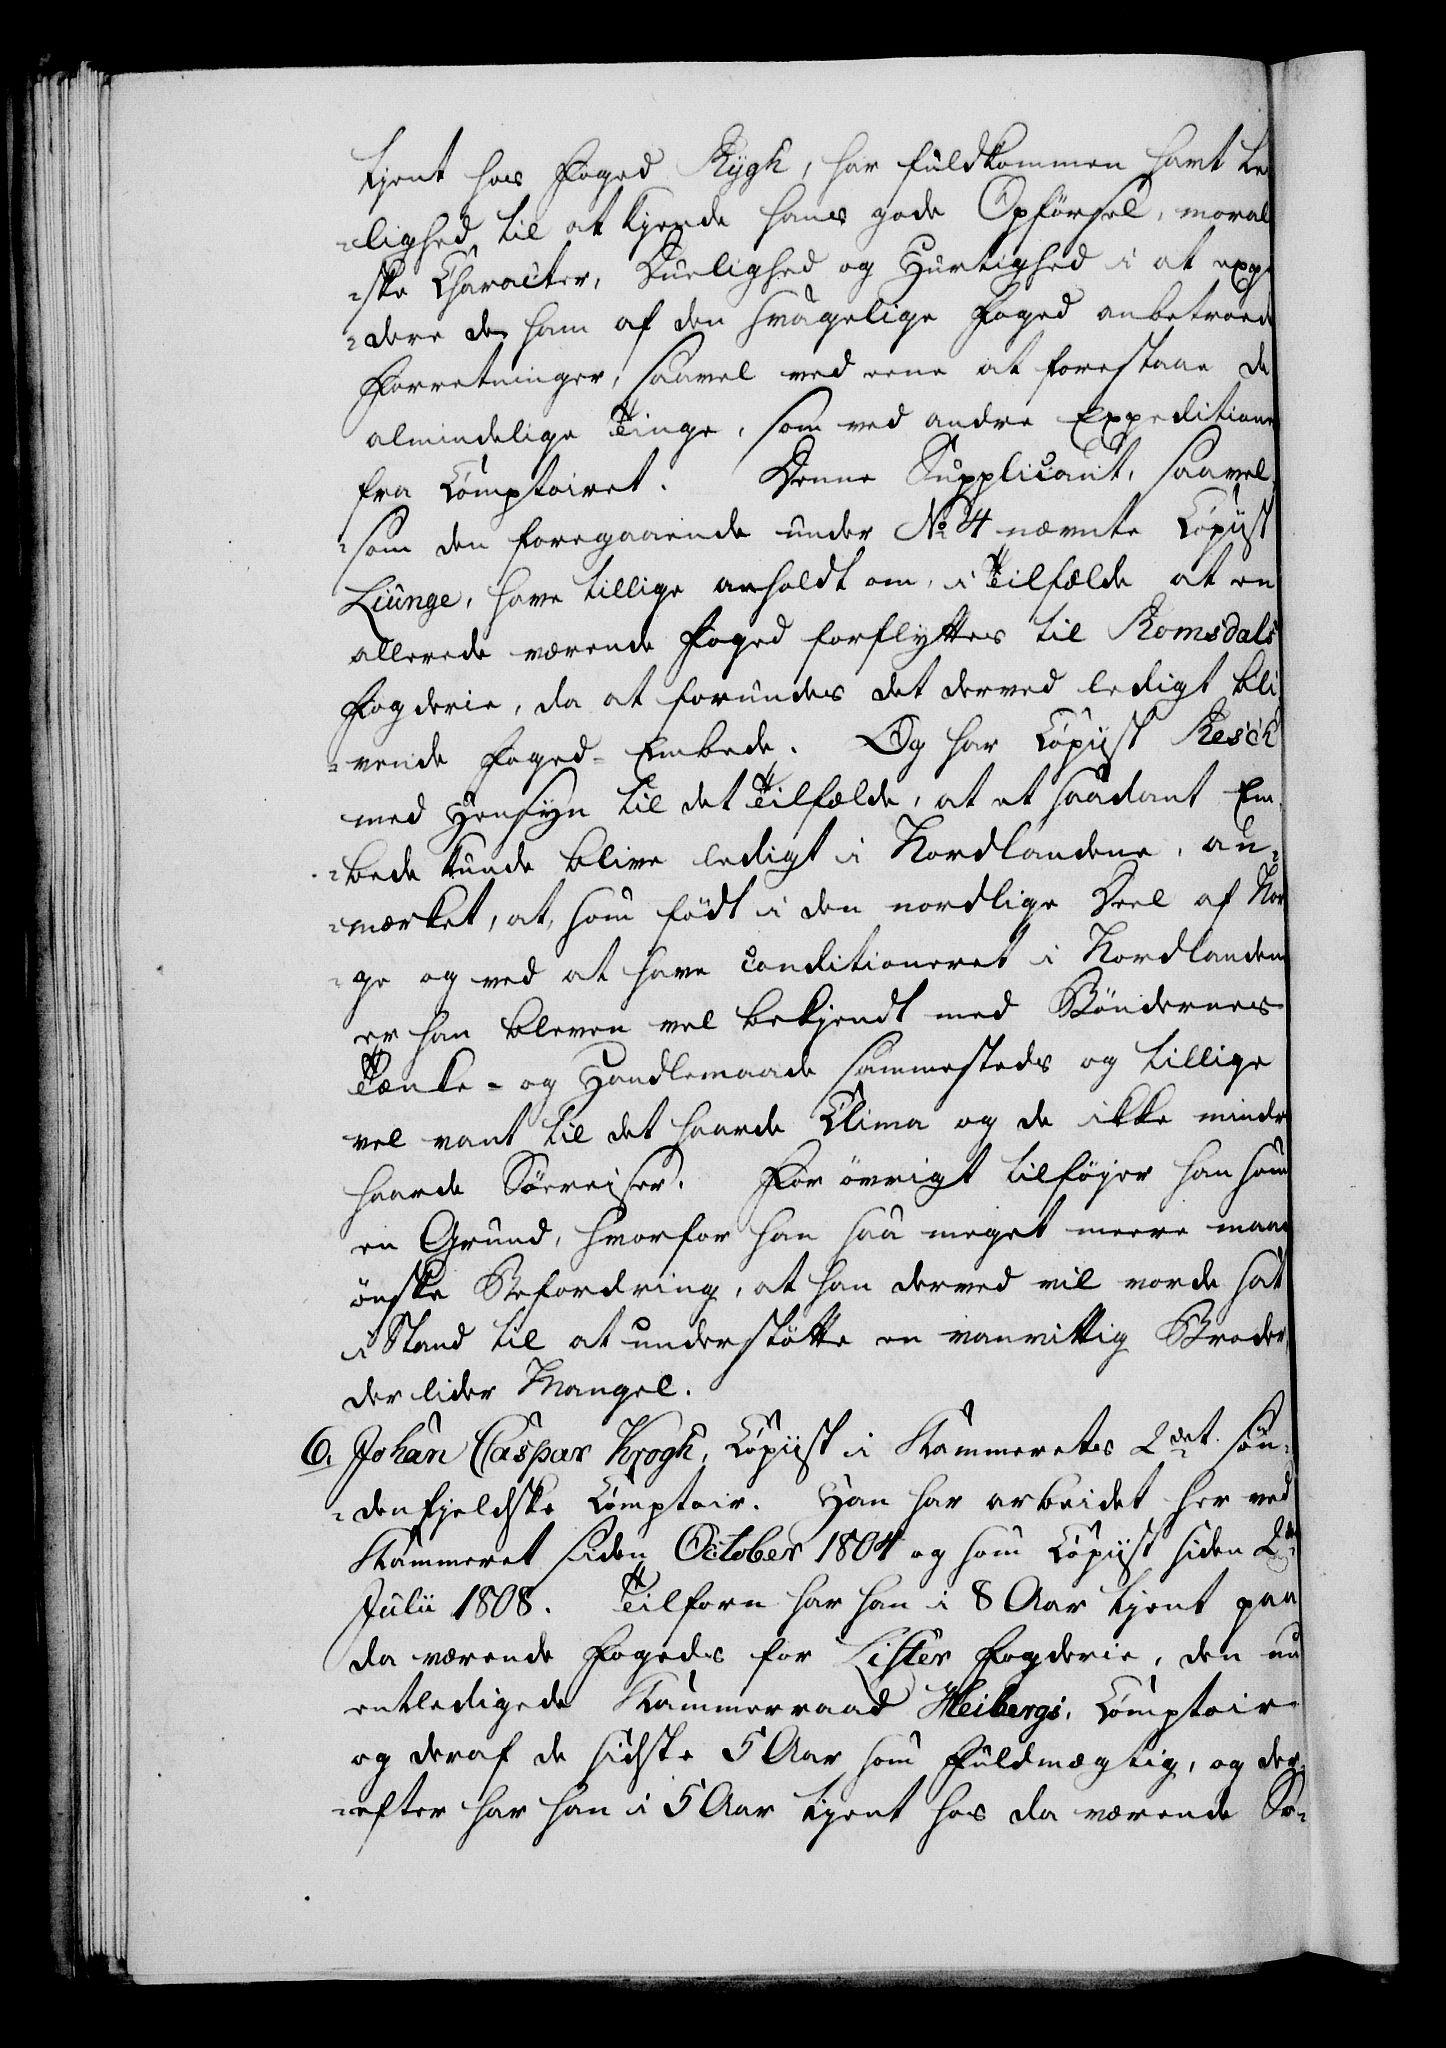 tjent hos Foged Rygh, har fuldkommen havt Le
-lighed til at kjende hans gode Opførsel, moral
-ske Character, Duelighed og Hurtighed i at expe
-dere de ham af den svagelige Foged anbetroede
Forretninger, saavel ved ene at forestaae de
almindelige Tinge, som ved andre Expeditione
fra Comptoiret. Denne Supplicant, saavel
-som den foregaaende under No 4 nævnte Copiist
Liunge, have tillige anholdt om, i Tilfælde at en
allerede værende Foged forflyttes til Romsdals
Fogderie, da at forundes det derved ledigt bli
-vende Foged-Embede. Og har Copiist Resch
med Hensyn til det Tilfælde, at et saadant Em
-bede kunde blive ledigt i Nordlandene, an-
-mærket, at, som født i den nordlige Deel af Nor
-ge og ved at have conditioneret i Nordlandene
er han bleven vel bekjendt med Bøndernes
Tænke- og Handlemaade sammesteds og tillige
vel vant til det haarde Clima og de ikke mindre
haarde Søereiser. For øvrigt tilføjer han som
en Grund, hvorfor han saa meget meere maae
ønske Befordring, at han derved vil vorde sat
i Stand til at understøtte en vanvittig Broder,
der lider Mangel.
6. Johan Caspar Krogh, Copiist i Kammerets 2det søn-
-denfjeldske Comptoir. Han har arbeidet her ved
Kammeret siden October 1804 og som Copiist siden 2den
Julii 1808. Tilforn har han i 8 Aar tjent paa
da værende Fogeds for Lister Fogderie, den nu
entledigede Kammerraad Heibergs, Comptoir
og deraf de sidste 5 Aar som Fuldmægtig, og der-
-efter har han i 5 Aar tjent hos da værende So-